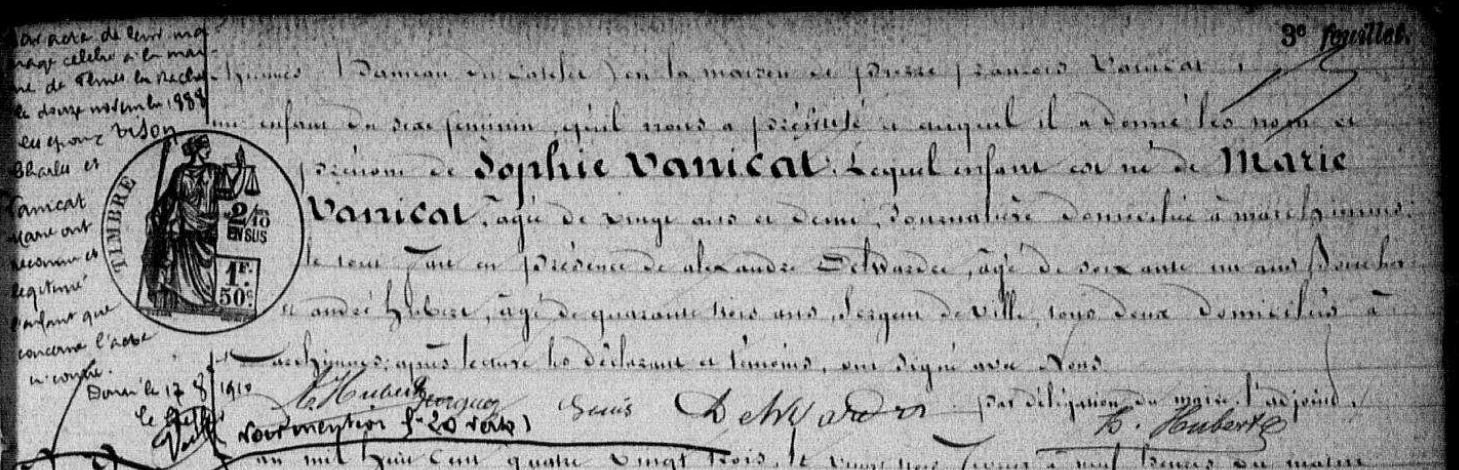 3e feuillet.
par acte de leur ma
riage célébré à la mai
rie de la
le douze novembre 1888
les époux Vison
Charles et
Vanicat
Marie ont
reconnu et
légitimé
l'enfant que
concerne l'acte
ci contre.
Douai le 17 8 1910
le
TIMBRE
2/10 EN SUS
1F. 50c.
en la maison de pierre françois Vanicat
un enfant du sexe féminin, qu'il nous a présenté et auquel il a donné les nom et
prénom de Sophie Vanicat. Lequel enfant est né de Marie
Vanicat, âgée de vingt ans et demi, Journalière domiciliée à marchiennes.
le tout fait en présence de alexandre Delwarde, âgé de soixante un ans
et andré hubert, âgé de quarante trois ans, sergent de ville, tous deux domiciliés à
marchiennes, après lecture les déclarant et témoins, ont signé avec Nous.
A. Hubert Delwarde par délégation du maire, l'adjoint,
h. Hubert
Voir mention f° 20 verso
an mil huit cent quatre vingt trois, le vingt Janvier à neuf heures du matin